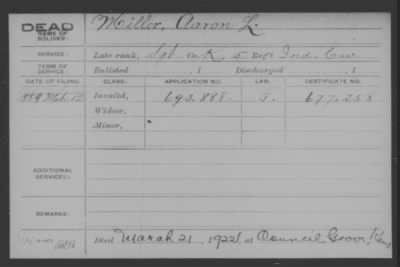 DEAD
NAME OF SOLDIER:
Miller, Aaron L.
SERVICE:
Late rank, Sgt Co. K, 5 Regt Ind. Cav
TERM OF SERVICE:
Enlisted , 1 Discharged , 1
DATE OF FILING. CLASS. APPLICATION NO. LAW. CERTIFICATE NO.
1889 Invalid, 693.888. J. 677.258
Widow,
Minor,
ADDITIONAL SERVICES:
REMARKS:
Died March 21, 1922, at Council Grove, Kans